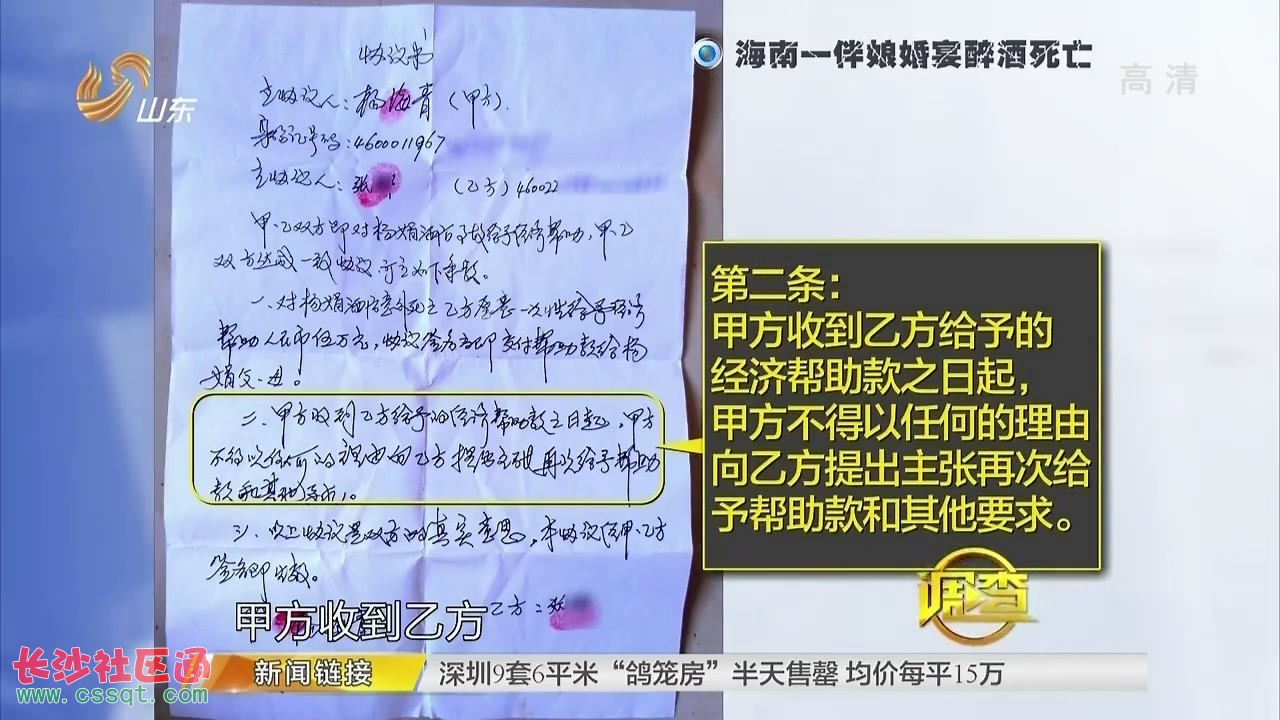 海南一伴娘婚宴醉酒死亡
高清
山东
协议书
立协议人：杨海青（甲方）.
身份证号码：4600011967
立协议人：张
（乙方）460022
双方达成一致协议 订立如下条款。
帮助人民币伍万元，协议签名立即交付帮助款给杨
二、甲方收到乙方给予的经济帮助款之日起，甲方
不得以任何的理由向乙方提出主张再次给予帮助
款和其他要求。
三、以上协议是双方的真实意思，本协议经甲、乙方
签名即生效。
乙方：张
第二条：
甲方收到乙方给予的
经济帮助款之日起，
甲方不得以任何的理由
向乙方提出主张再次给
予帮助款和其他要求。
调查
甲方收到乙方
长沙社区通
www.cssqt.com
新闻链接
深圳9套6平米“鸽笼房”半天售罄 均价每平15万